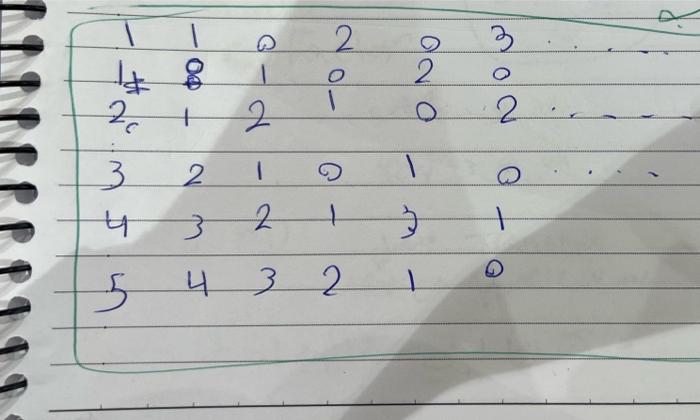 1 1 0 2 0 3 . . . . .
1 0 2 0
2 1 2 1 0 2 . - - - -
3 2 1 0 1 0 . . . . .
4 3 2 1 3 1
5 4 3 2 1 0